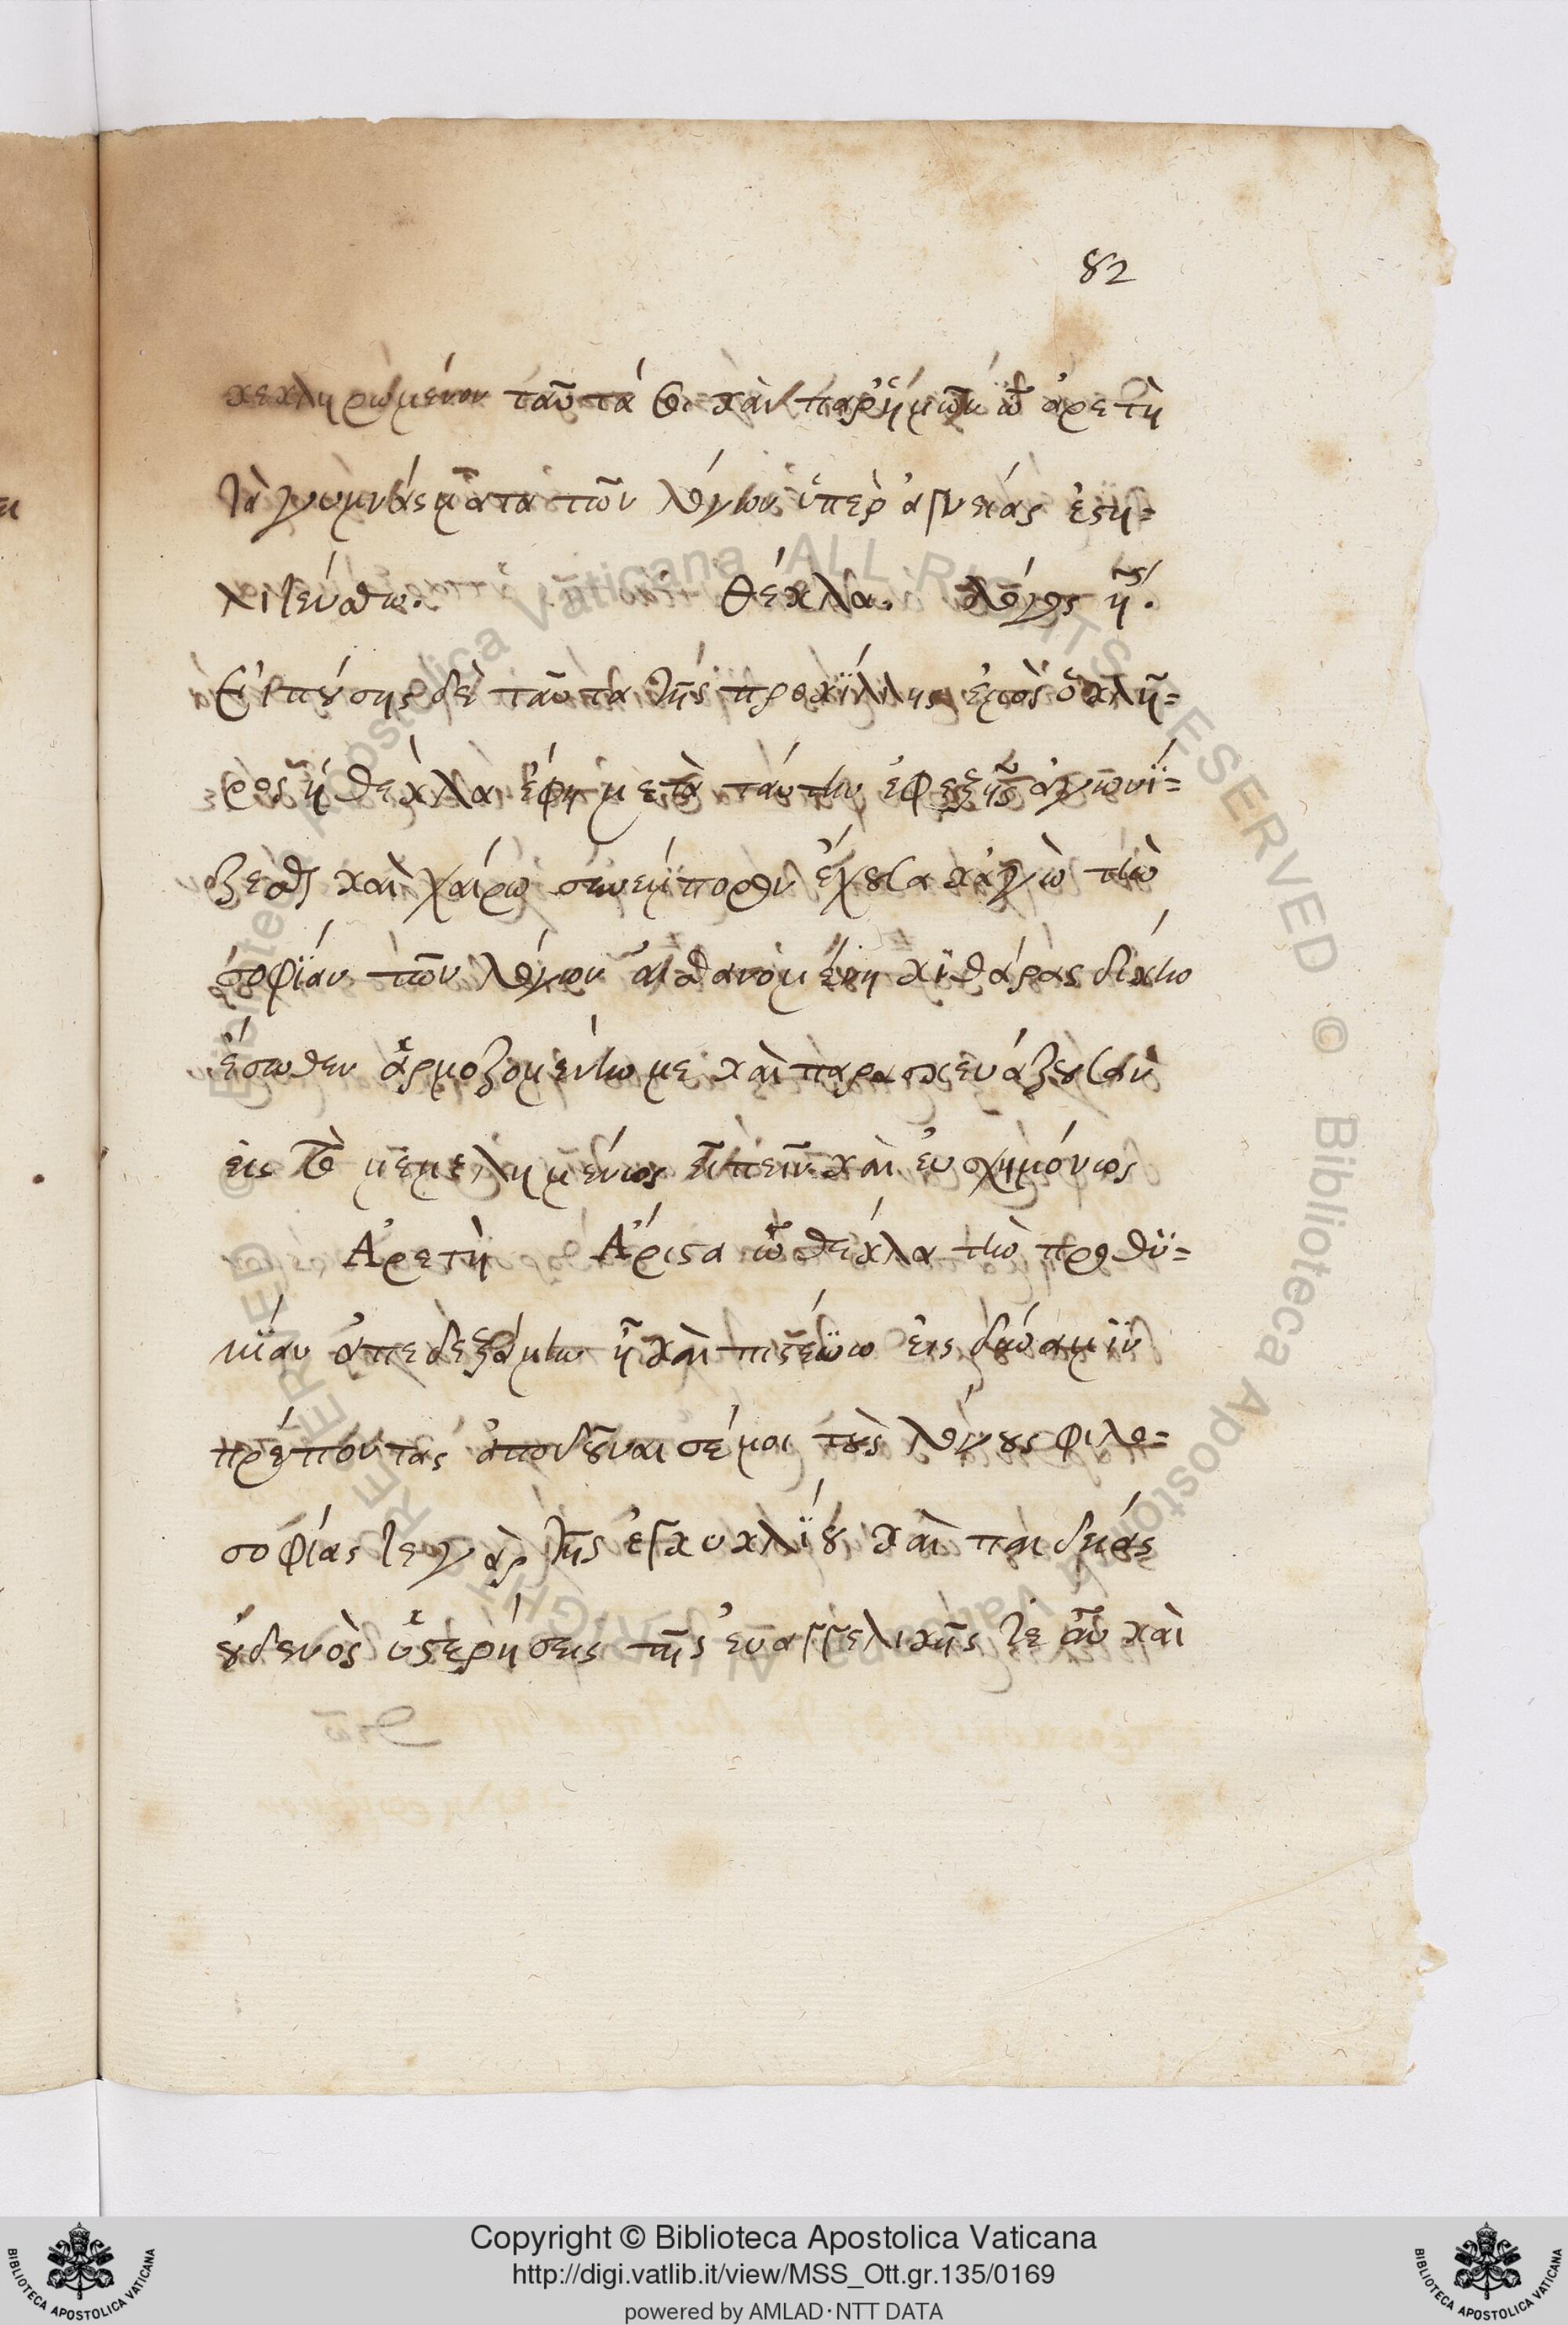 82
κεκληρωμένον ταῦτά σοι κἀν παρ' ἡμῶν ὦ ἀρετὴ
τὰ γυμνάσματα τῶν λόγων ὑπὲρ ἁγνείας ἐστη-
λιτεύσθω. Θέκλα. λόγος η΄.
Εἰπούσης δὲ ταῦτα τῆς προκίλλης ἐμὸς ὁ κλῆ-
ρος ἡ θέκλα ἔφη μετὰ ταύτην ἐφεξῆς ἀγωνί-
ζεσθαι καὶ χαίρω συνέμπορον ἔχουσα κἀγὼ τὴν
σοφίαν τῶν λόγων αἰσθανομένη κιθάρας δίκην
ἔσωθεν ἁρμοζομένην με καὶ παρασκευάζουσαν
εἰς τὸ μεμελημένως εἰπεῖν καὶ εὐσχημόνως
Ἀρετὴ Ἄριστα ὦ θέκλα τὴν προθυ-
μίαν ἀπεδεξάμην ᾗ καὶ πιστεύω εἰς δύναμιν
πρέποντας ἀποδοῦναι σέ μοι τοὺς λόγους φιλο-
σοφίας τε γὰρ τῆς ἐγκυκλίου καὶ παιδείας
οὐδενὸς ὑστερήσεις τῆς εὐαγγελικῆς τε αὖ καὶ
Copyright © Biblioteca Apostolica Vaticana
http://digi.vatlib.it/view/MSS_Ott.gr.135/0169
powered by AMLAD·NTT DATA
BIBLIOTECA APOSTOLICA VATICANA
BIBLIOTECA APOSTOLICA VATICANA